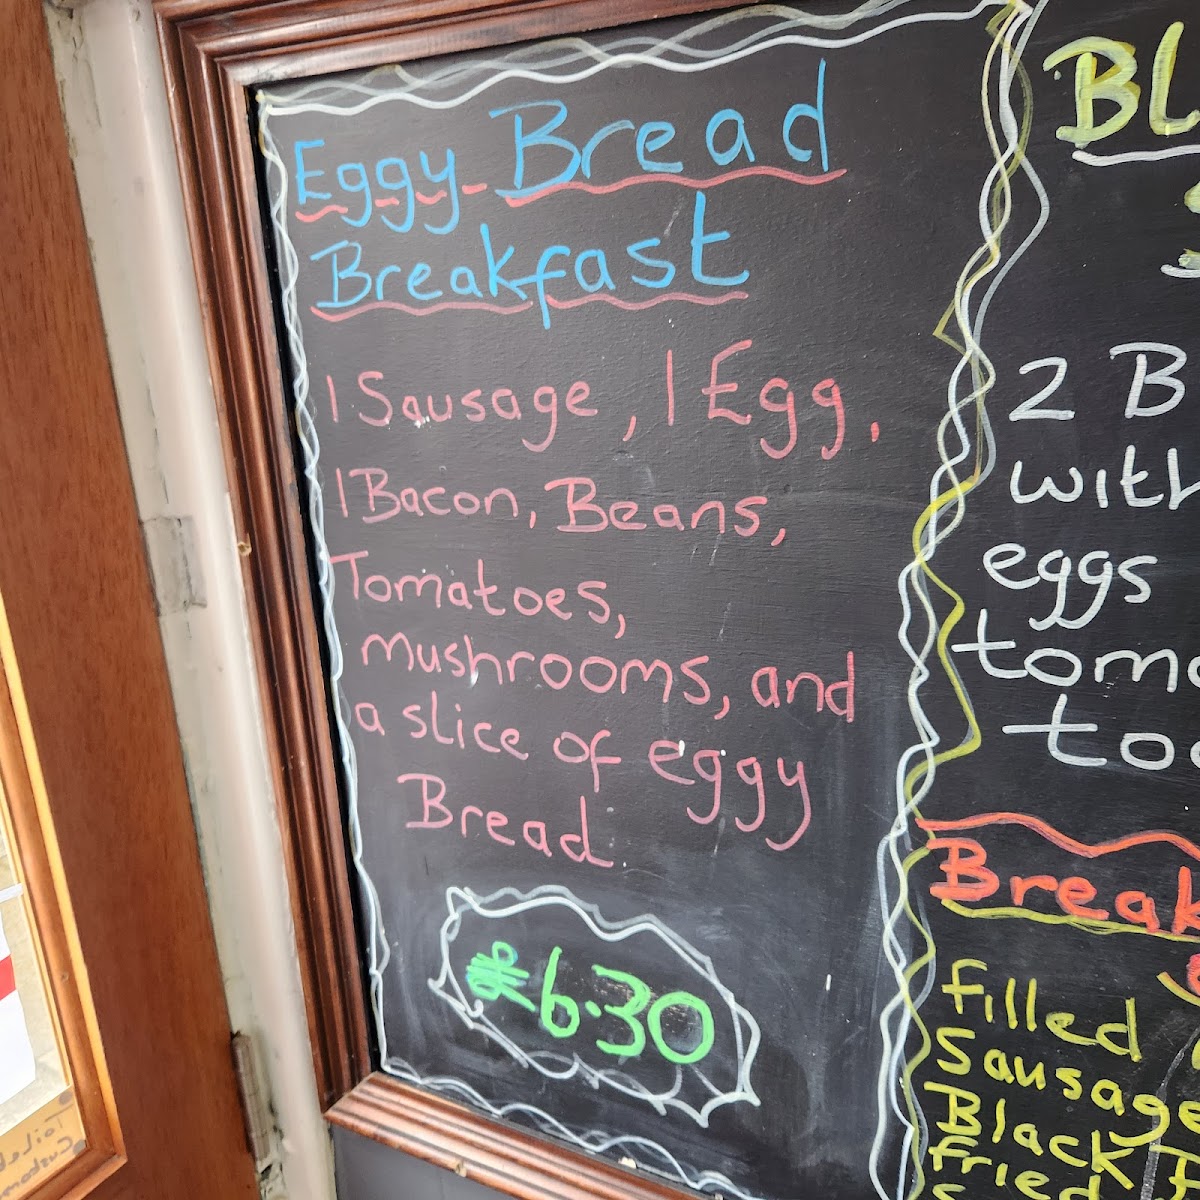 Eggy Bread
Breakfast
1 Sausage, 1 Egg,
1 Bacon, Beans,
Tomatoes,
mushrooms, and
a slice of eggy
Bread
£6.30
2 B
with
eggs
Filled
Sausage
Black
Fried